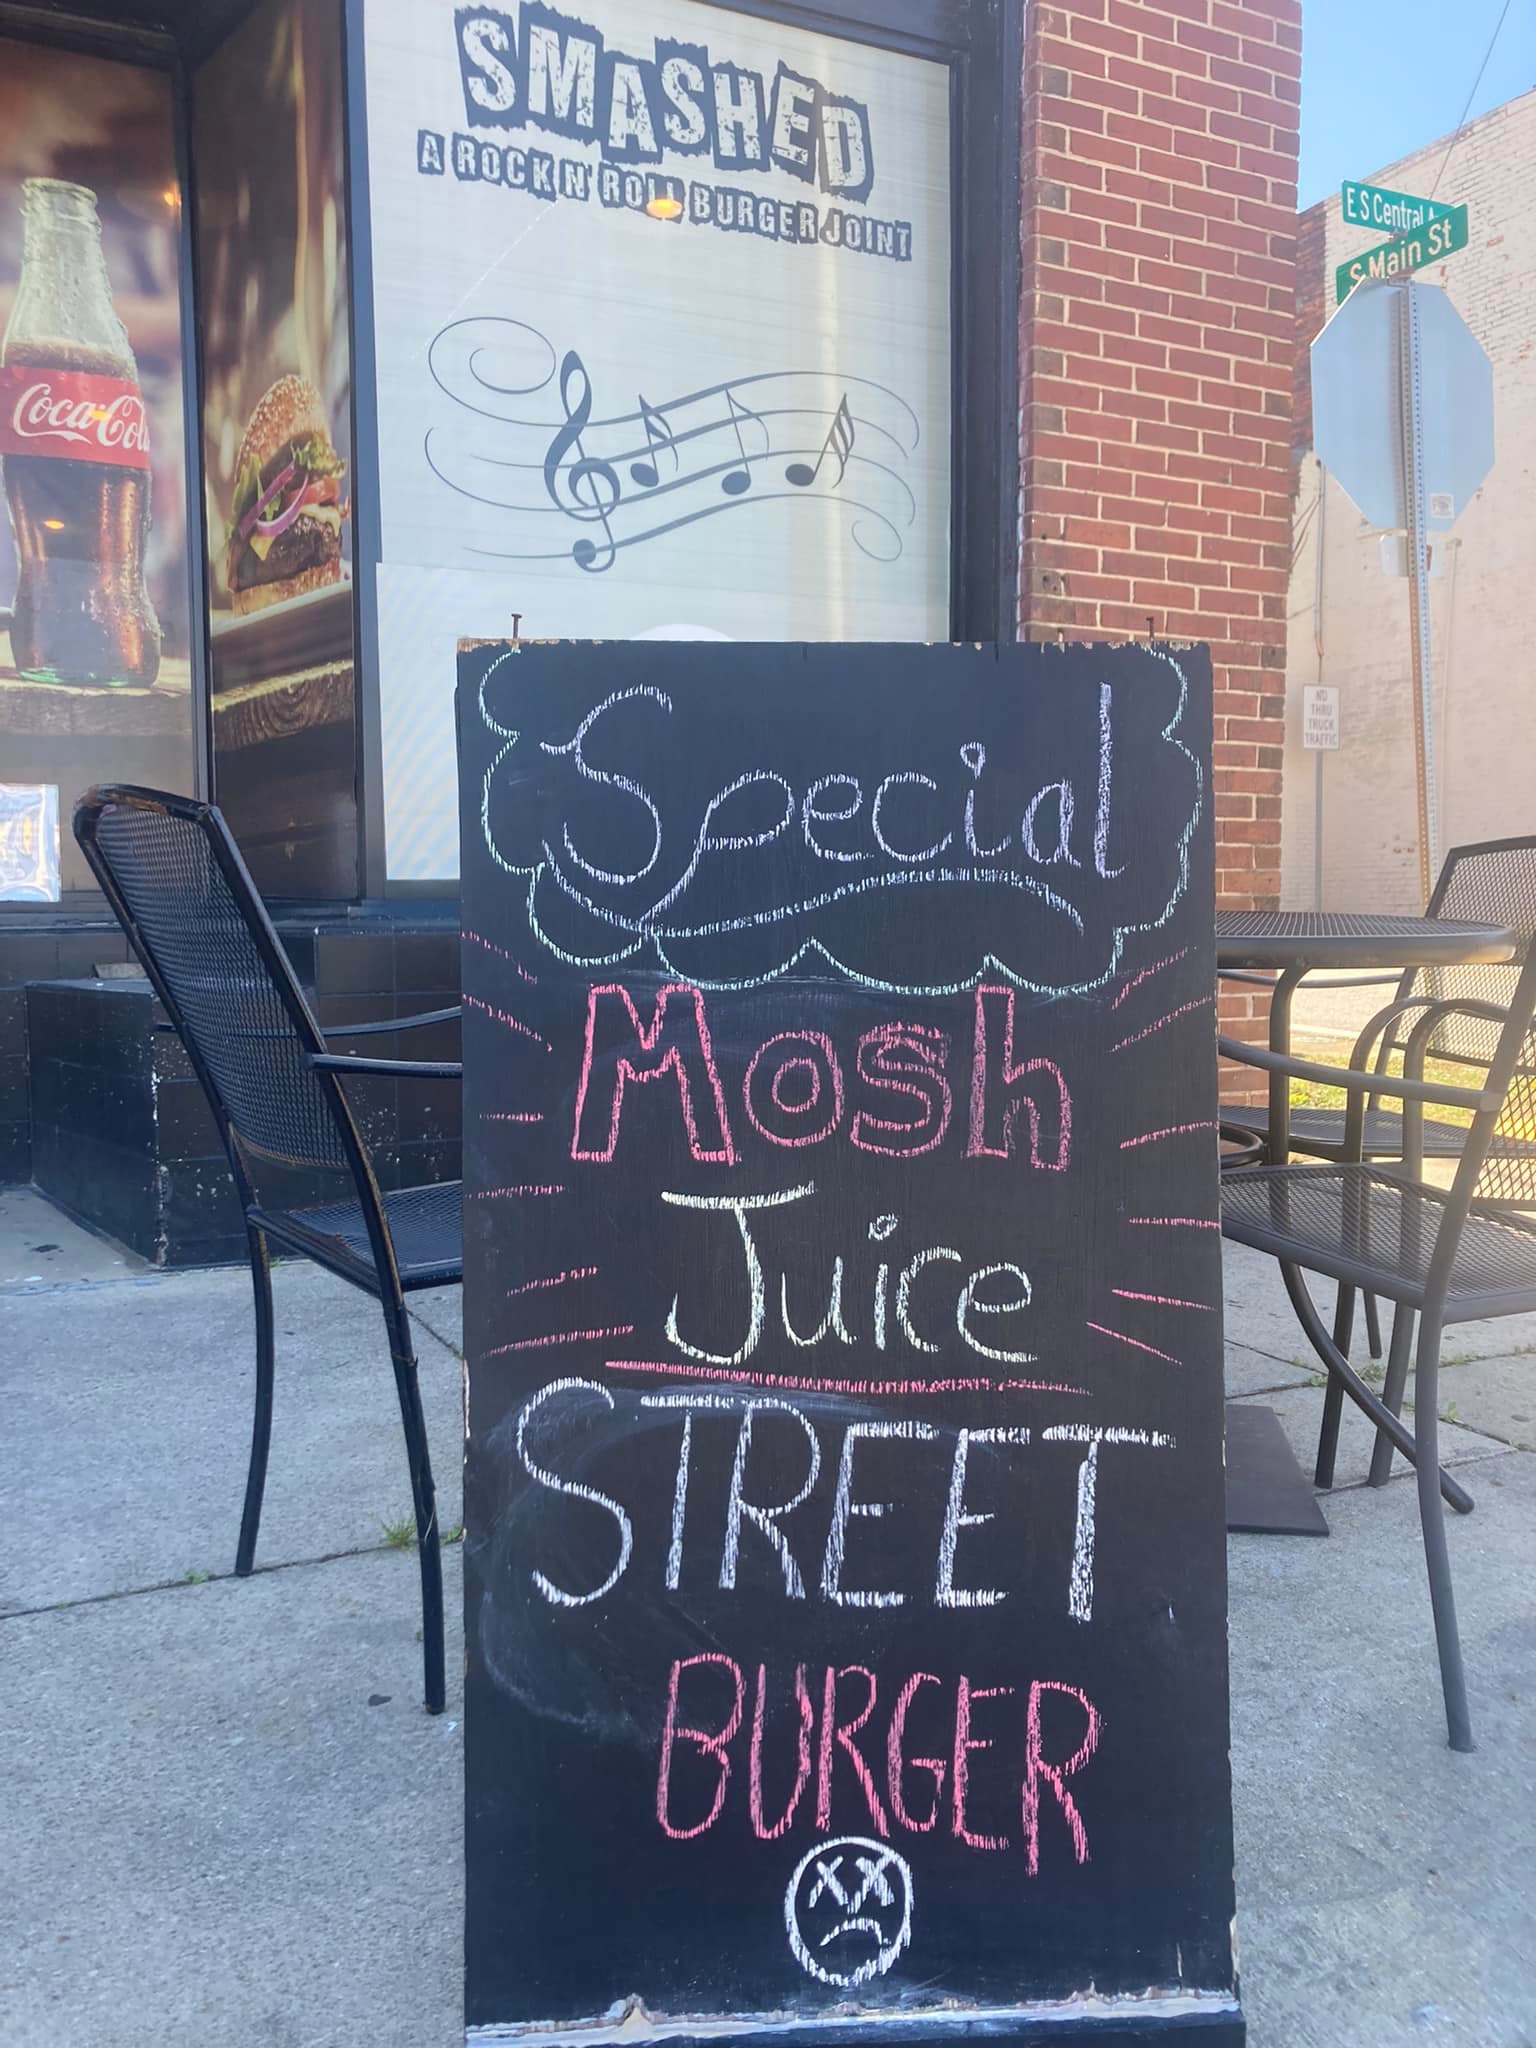 SMASHED
A ROCK N' ROLL BURGER JOINT
E S Central
S Main St
Coca-Cola
NO
THRU
TRUCK
TRAFFIC
Special
Mosh
Juice
STREET
BURGER